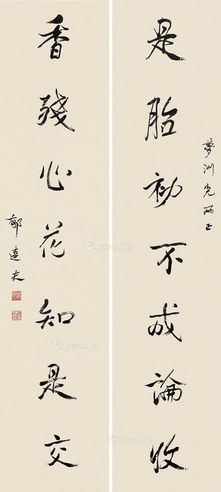 夢洲兄兩正
是胎不成論收
香殘心花知是交
郁達夫